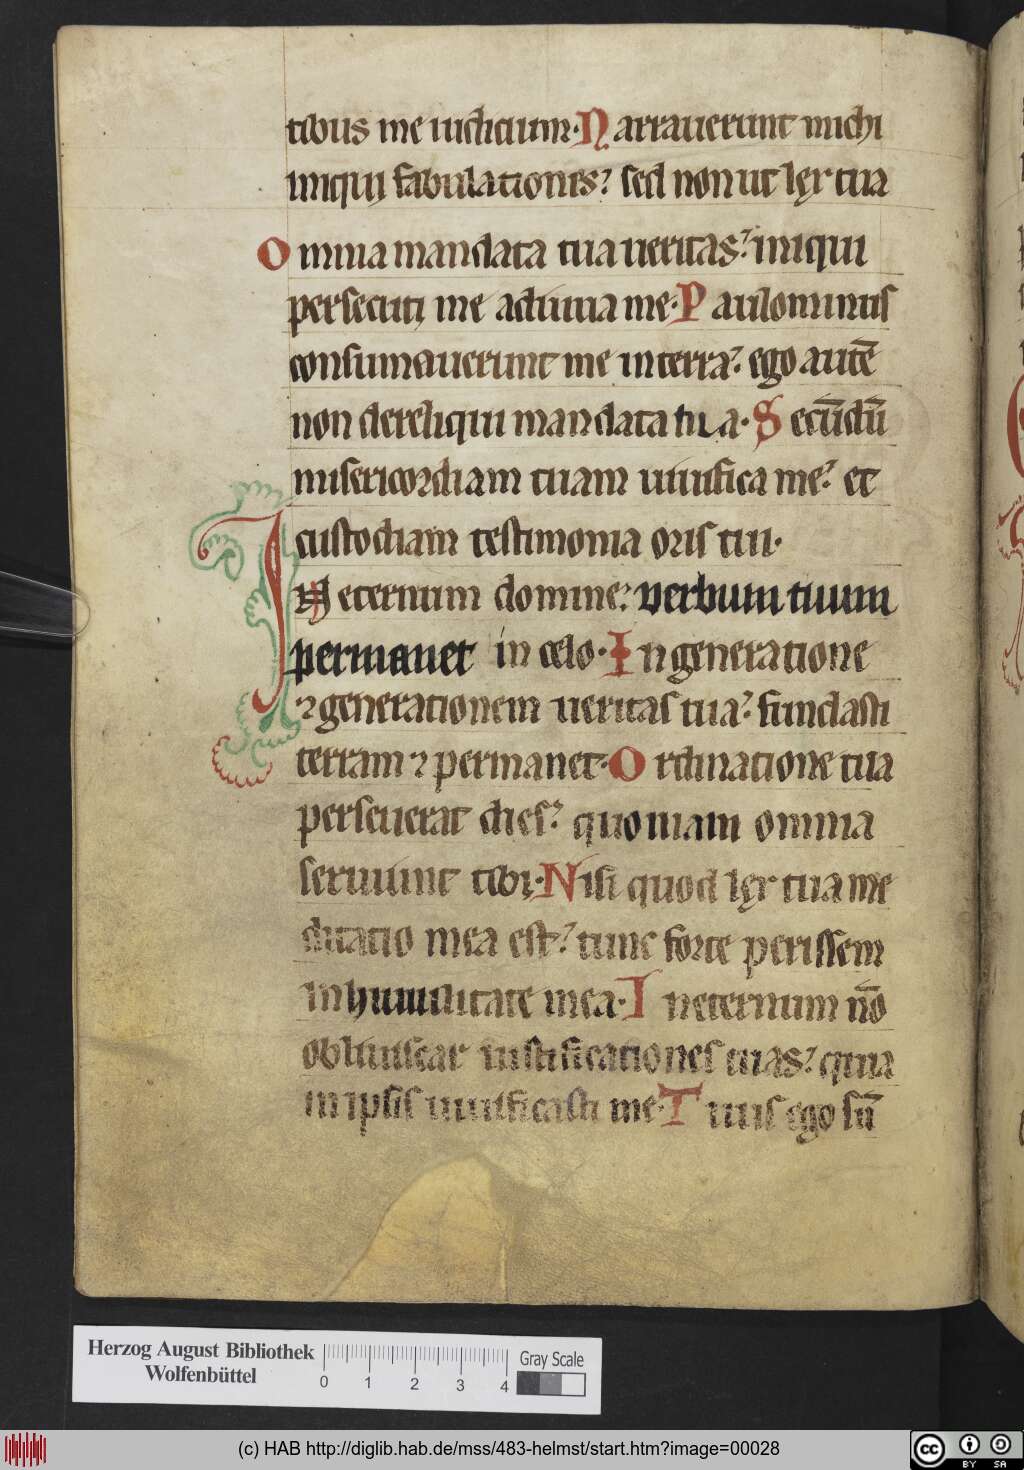 tibus me iudicium· Narrauerunt michi
iniqui fabulationes? sed non ut lex tua
Omnia mandata tua ueritas? iniqui
persecuti me adiuua me· Paulominus
consumauerunt me in terra? ego autē
non dereliqui mandata tua· Secūdū
misericordiam tuam uiuifica me? et
custodiam testimonia oris tui·
IN eternum domine? verbum tuum
permanet in celo· In generatione
⁊ generationem ueritas tua? fundasti
terram ⁊ permanet· Ordinatione tua
perseuerat dies? quoniam omnia
seruiunt tibi· Nisi quod lex tua me
ditatio mea est? tunc forte perissem
in humilitate mea· In eternum nō
obliuiscar iustificationes tuas? quia
in ipsis uiuificasti me· Tuus ego sū
Herzog August Bibliothek
Wolfenbüttel
0 1 2 3 4
Gray Scale
(c) HAB http://diglib.hab.de/mss/483-helmst/start.htm?image=00028
cc BY SA